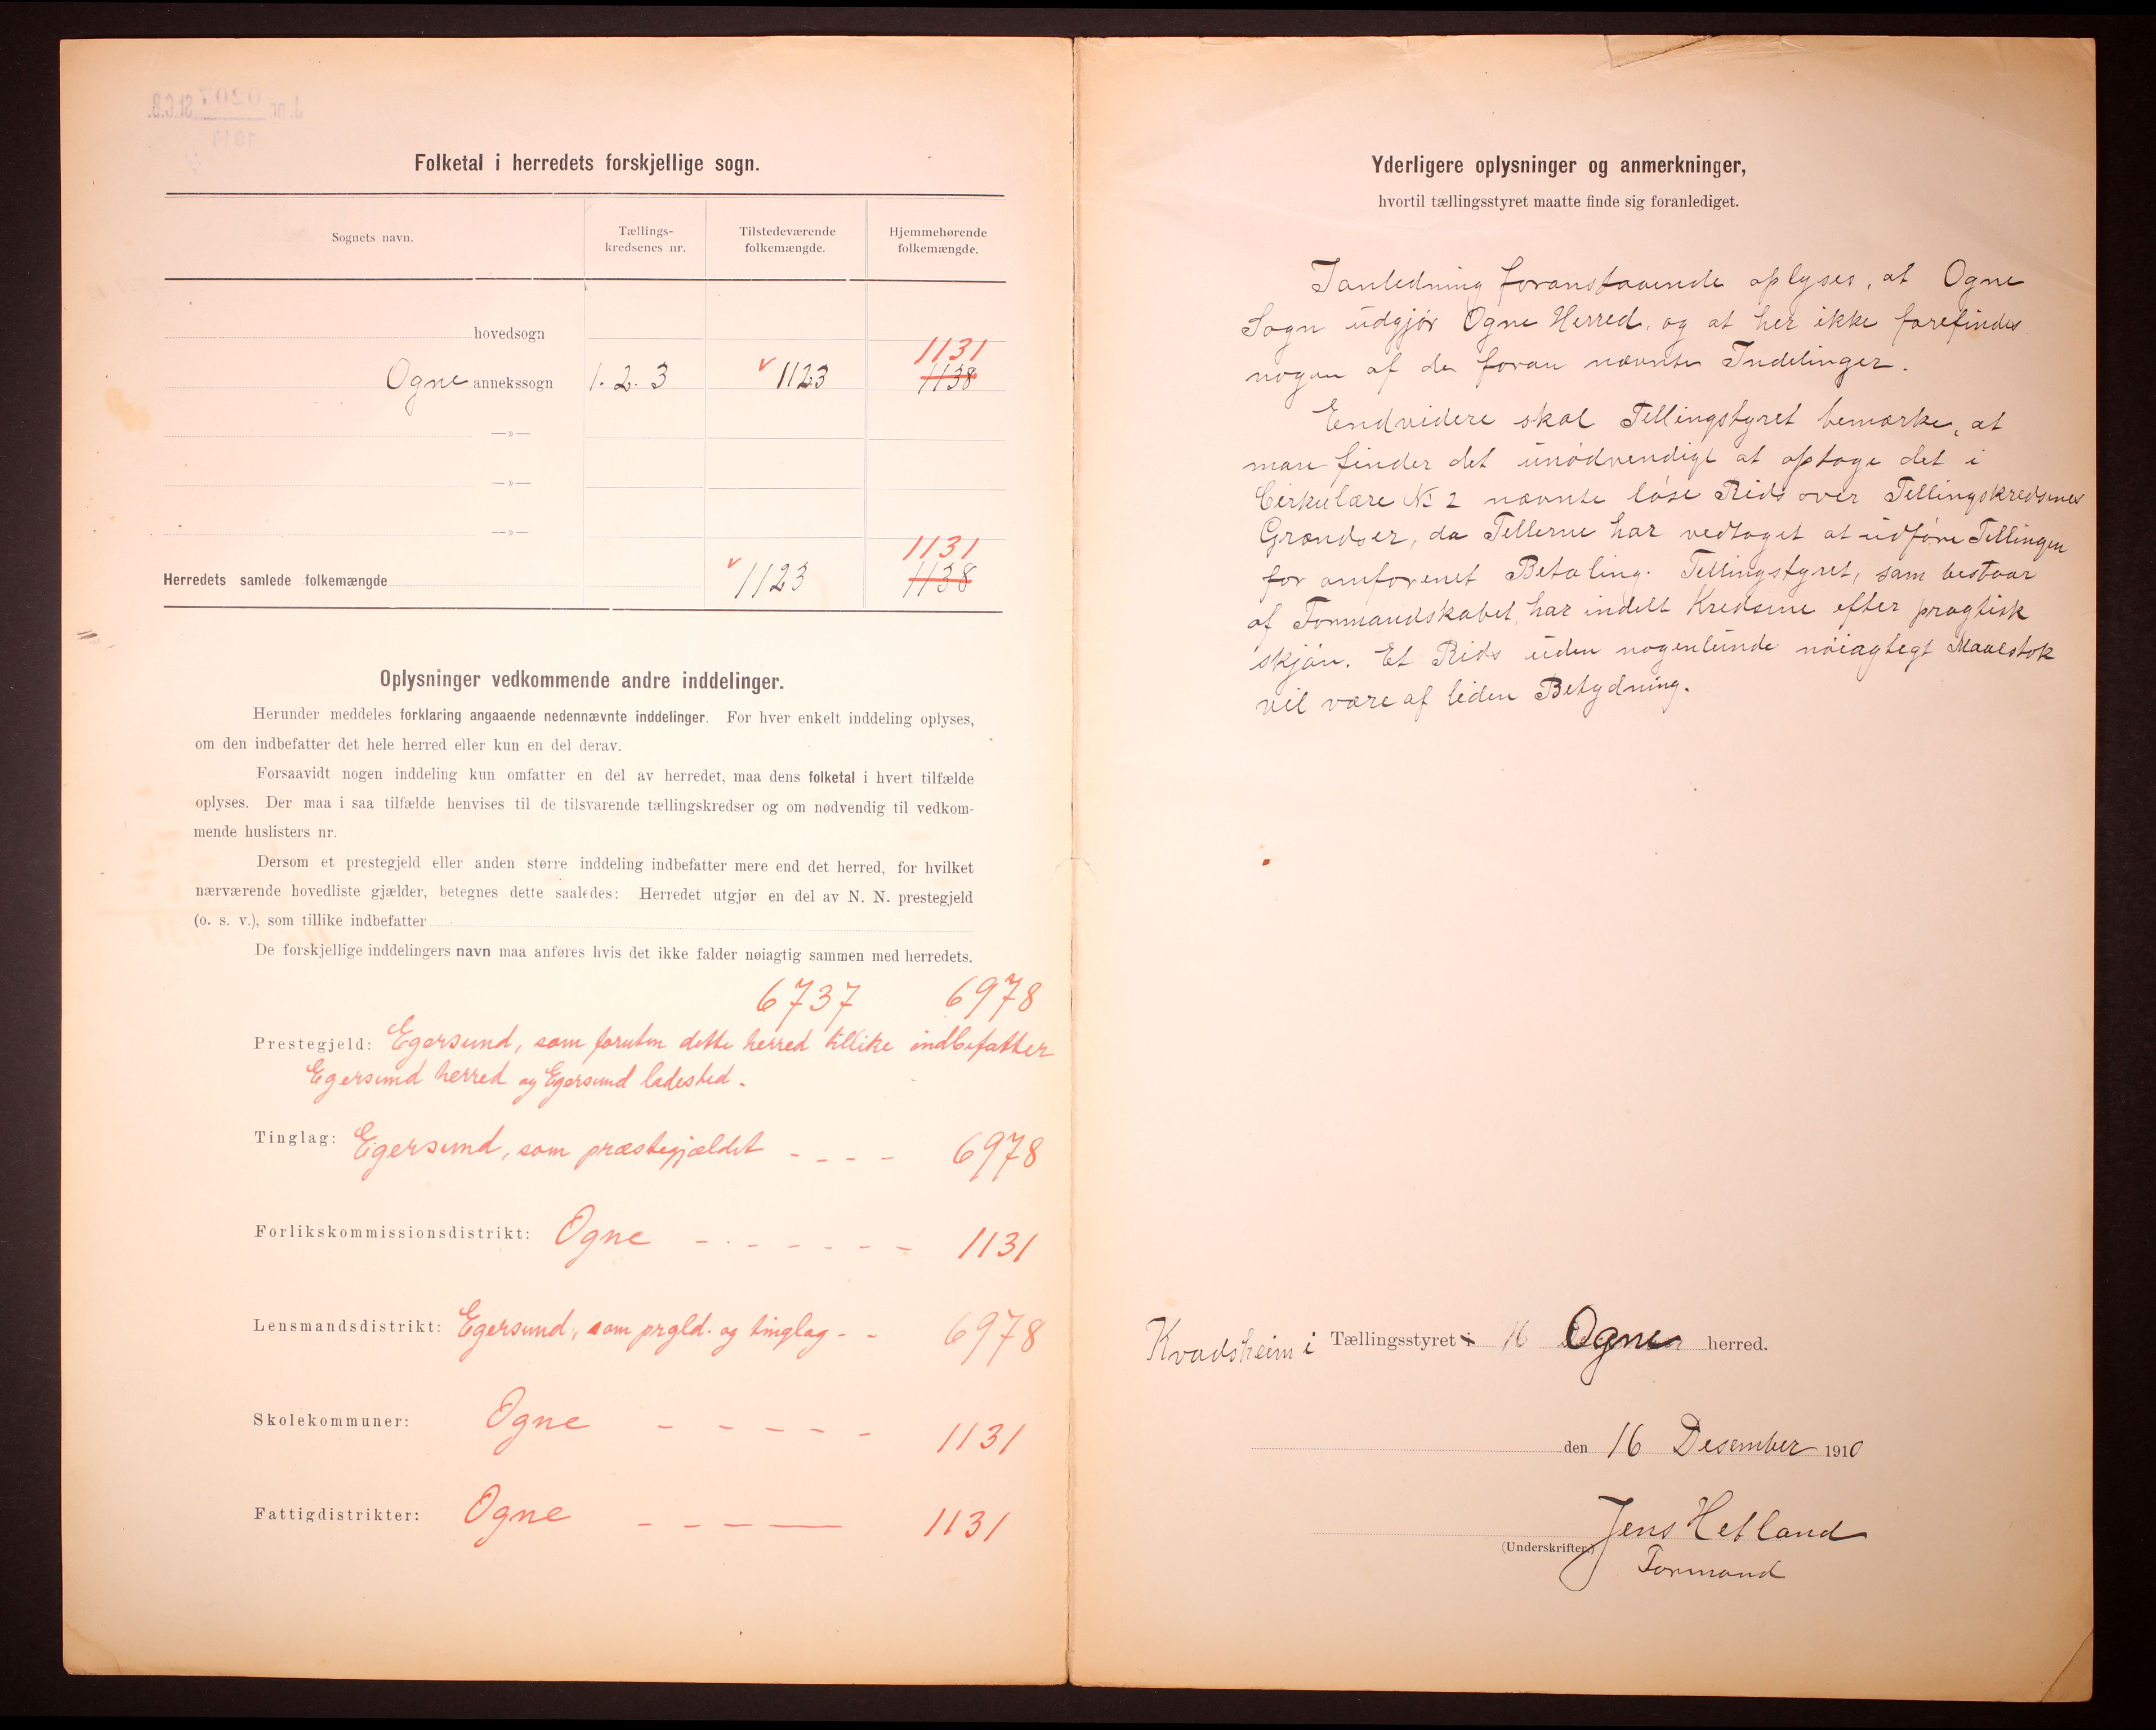 J. nr. 0207 St. C. B.
1911
Folketal i herredets forskjellige sogn.
Sognets navn. Tællings-kredsenes nr. Tilstedeværende folkemængde. Hjemmehørende folkemængde.
hovedsogn
1131
Ogne annekssogn 1. 2. 3 1123 1138
—»—
—»—
—»—
1131
Herredets samlede folkemængde 1123 1138
Oplysninger vedkommende andre inddelinger.
Herunder meddeles forklaring angaaende nedennævnte inddelinger. For hver enkelt inddeling oplyses,
om den indbefatter det hele herred eller kun en del derav.
Forsaavidt nogen inddeling kun omfatter en del av herredet, maa dens folketal i hvert tilfælde
oplyses. Der maa i saa tilfælde henvises til de tilsvarende tællingskredser og om nødvendig til vedkom-
mende huslisters nr.
Dersom et prestegjeld eller anden større inddeling indbefatter mere end det herred, for hvilket
nærværende hovedliste gjælder, betegnes dette saaledes: Herredet utgjør en del av N. N. prestegjeld
(o. s. v.), som tillike indbefatter
De forskjellige inddelingers navn maa anføres hvis det ikke falder nøiagtig sammen med herredets.
6737 6978
Prestegjeld: Egersund, som foruten dette herred tillike indbefatter
Egersund herred og Egersund ladested.
Tinglag: Egersund, som præstegjældet - - - - 6978
Forlikskommissionsdistrikt: Ogne - - - - - - - 1131
Lensmandsdistrikt: Egersund, som prgld. og tinglag - - 6978
Skolekommuner: Ogne - - - - - 1131
Fattigdistrikter: Ogne - - - — 1131
Yderligere oplysninger og anmerkninger,
hvortil tællingsstyret maatte finde sig foranlediget.
Ianledning foranstaaende oplyses, at Ogne
Sogn udgjør Ogne Herred, og at her ikke forefindes
nogen af de foran nævnte Indelinger.
Endvidere skal Tellingstyret bemærke, at
man finder det unødvendigt at optage det i
Cirkulære № 2 nævnte løse Rids over Tellingskredsenes
Grændser, da Tellerne har vedtaget at udføre Tellingen
for omforenet Betaling. Tellingstyret, som bestaar
af Formandskabet, har indelt Kredsene efter pragtisk
skjøn. Et Rids uden nogenlunde nøiagtegt Maalestok
vil være af liden Betydning.
Kvadsheim i Tællingsstyret i 16 Ogne herred.
den 16 Desember 1910
Jens Hetland
(Underskrifter.)
Formand